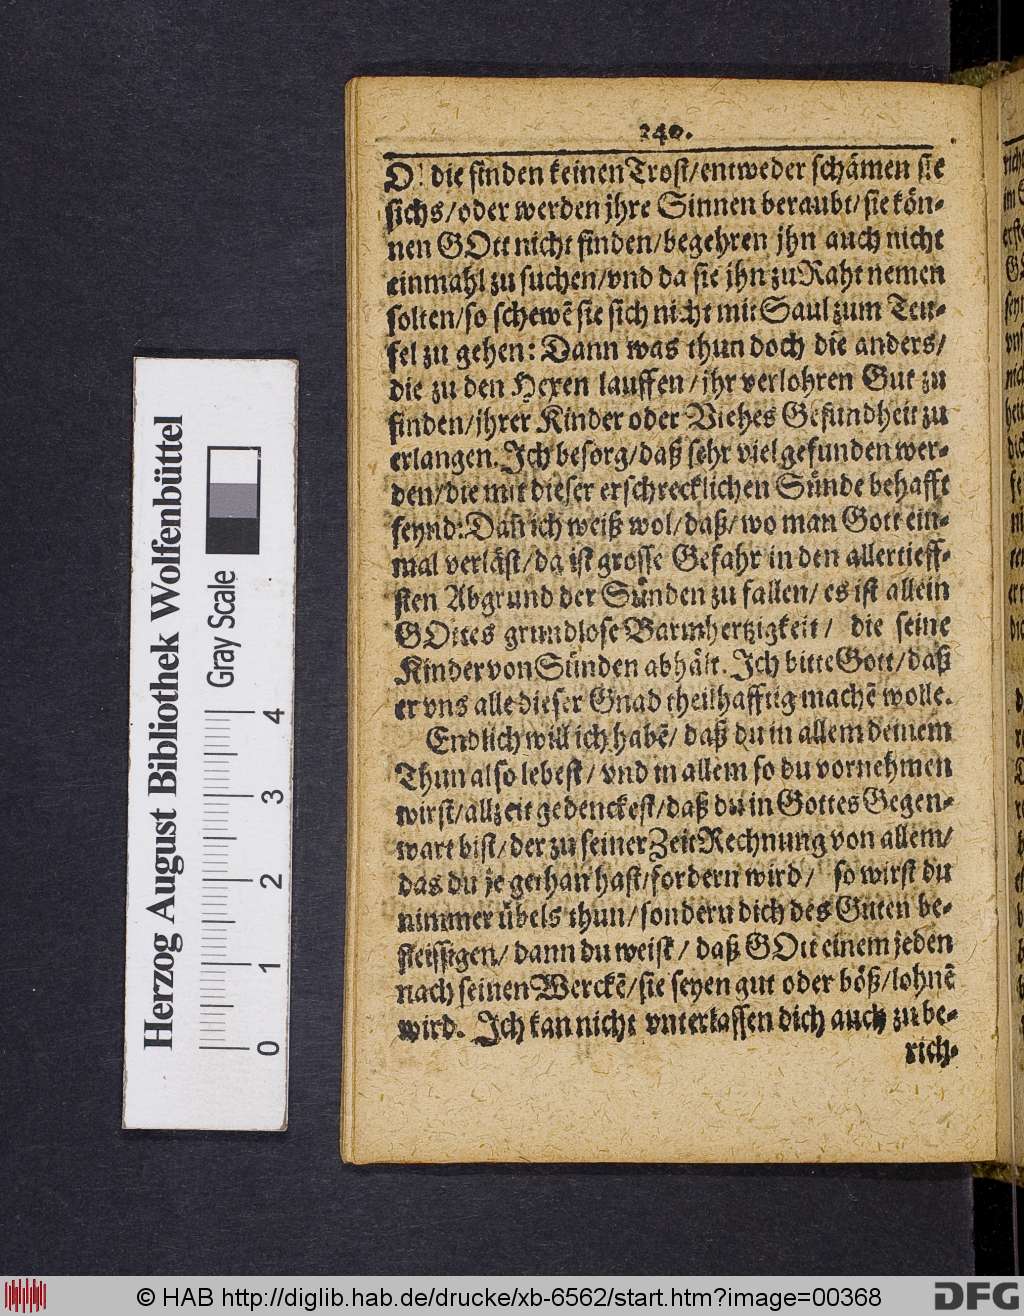 240.
O! die finden keinen Trost/entweder schämen sie
sichs/oder werden jhre Sinnen beraubt/sie kön-
nen GOtt nicht finden/begehren jhn auch nicht
einmahl zu suchen/vnd da sie jhn zu Raht nemen
solten/so schewẽ sie sich nicht mit Saul zum Teu-
fel zu gehen: Dann was thun doch die anders/
die zu den Hexen lauffen/jhr verlohren Gut zu
finden/jhrer Kinder oder Viehes Gesundheit zu
erlangen. Ich besorg/daß sehr viel gefunden wer-
den/die mit dieser erschrecklichen Sünde behafft
seynd: Dañ ich weiß wol/daß/wo man Gott ein-
mal verläst/da ist grosse Gefahr in den allertieff-
sten Abgrund der Sünden zu fallen/es ist allein
GOttes grundlose Barmhertzigkeit/ die seine
Kinder von Sünden abhält. Ich bitte Gott/daß
er vns alle dieser Gnad theilhafftig machẽ wolle.
Endlich will ich habẽ/ daß du in allem deinem
Thun also lebest/ vnd in allem so du vornehmen
wirst/allzeit gedenckest/daß du in Gottes Gegen-
wart bist/der zu seiner Zeit Rechnung von allem/
das du je gethan hast/fordern wird/ so wirst du
nimmer übels thun/sondern dich des Guten be-
fleissigen/ dann du weist/ daß GOtt einem jeden
nach seinen Werckẽ/sie seyen gut oder böß/lohnẽ
wird. Ich kan nicht vnterlassen dich auch zu be-
rich-
Herzog August Bibliothek Wolfenbüttel
Gray Scale
0 1 2 3 4
© HAB http://diglib.hab.de/drucke/xb-6562/start.htm?image=00368
DFG